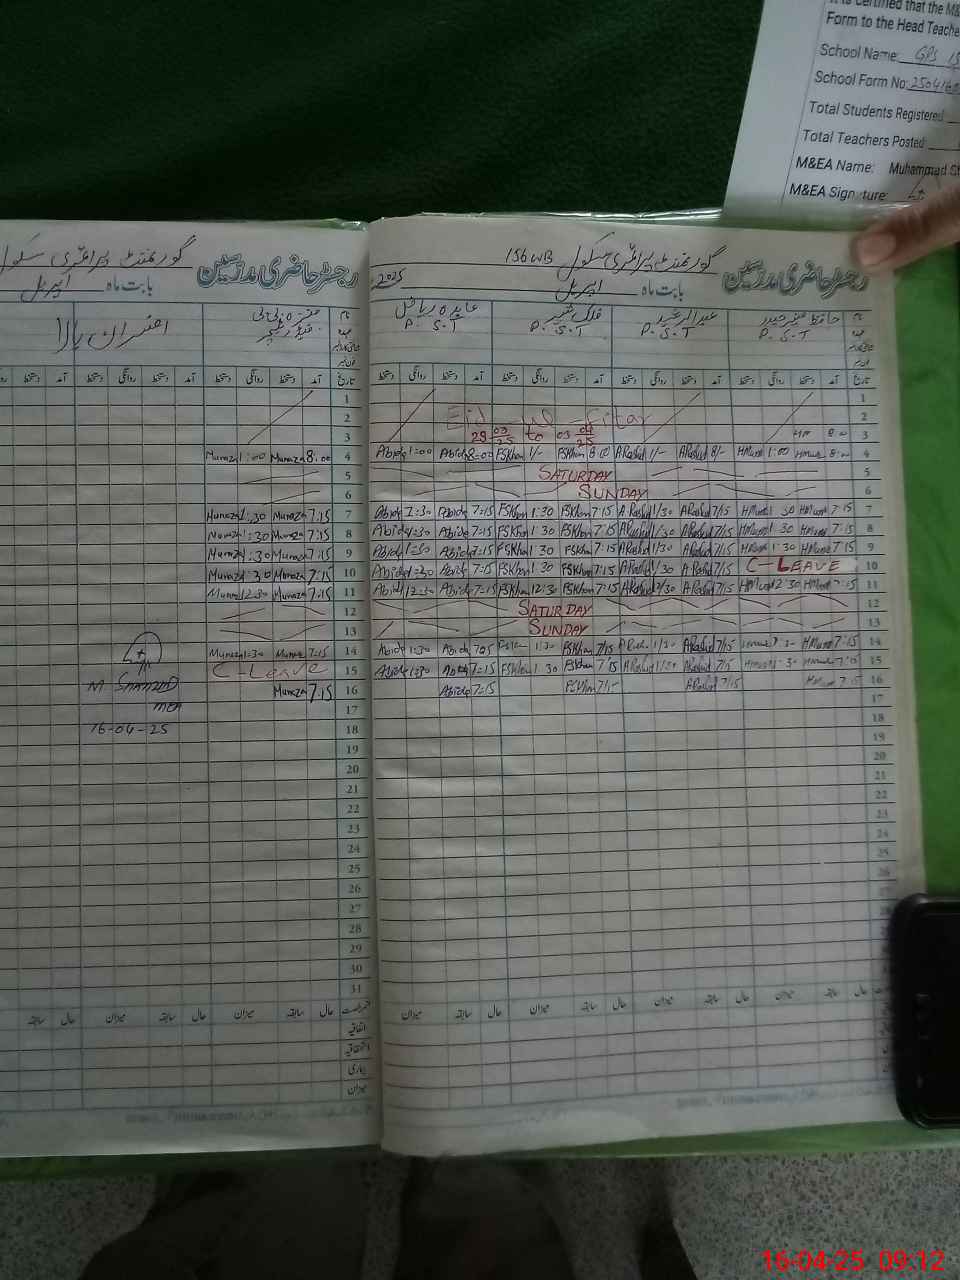 It is Certified that the M&
Form to the Head Teache
School Name: GPS 15
School Form No: 2504160
Total Students Registered:
Total Teachers Posted:
M&EA Name: Muhammad S
M&EA Signature:
گورنمنٹ پرائمری سکول
رجسٹر حاضری مدرسین
بابت ماہ اپریل
افسران بالا
نام
تاریخ
آمد دستخط روانگی دستخط
1
2
3
4 Munaza 8:00 Munaza 1:00
5
6
7 Munaza 7:15 Munaza 1:30
8 Munaza 7:15 Munaza 1:30
9 Munaza 7:15 Munaza 1:30
10 Munaza 7:15 Munaza 1:30
11 Munaza 7:15 Munaza 12:30
12
13
14 Munaza 7:15 Munaza 1:30
15 C-Leave
16 Munaza 7:15
M. SHAHZAD
MEA
16-04-25
17
18
19
20
21
22
23
24
25
26
27
28
29
30
31
حال سابقہ میزان
اتفاقیہ
استحقاقیہ
بیماری
میزان
گورنمنٹ پرائمری سکول 156 WB
رجسٹر حاضری مدرسین
بابت ماہ اپریل 2025
عابدہ ریاض
P.S.T
فلک شبیر
P.S.T
عبدالرشید
P.S.T
حافظ منیر حیدر
P.S.T
نام
تاریخ آمد دستخط روانگی دستخط
1
2 Eid ul Fitar
3 29 03/25 to 03 04/25 8:00
4 Abida 1:00 Abida 8:00 FSKhan 1/- FSKhan 8:00 ARashid 1/- ARashid 8/- HMunir 1:00 HMunir 8:00
5 SATURDAY
6 SUNDAY
7 Abida 1:30 Abida 7:15 FSKhan 1:30 FSKhan 7:15 ARashid 1/30 ARashid 7/15 HMunir 1:30 HMunir 7:15
8 Abida 1:30 Abida 7:15 FSKhan 1:30 FSKhan 7:15 ARashid 1/30 ARashid 7/15 HMunir 1:30 HMunir 7:15
9 Abida 1:30 Abida 7:15 FSKhan 1:30 FSKhan 7:15 ARashid 1/30 ARashid 7/15 HMunir 1:30 HMunir 7:15
10 Abida 1:30 Abida 7:15 FSKhan 1:30 FSKhan 7:15 ARashid 1/30 ARashid 7/15 C-LEAVE
11 Abida 12:30 Abida 7:15 FSKhan 12:30 FSKhan 7:15 ARashid 12/30 ARashid 7/15 HMunir 12:30 HMunir 7:15
12 SATURDAY
13 SUNDAY
14 Abida 1:30 Abida 7:15 FSKhan 1:30 FSKhan 7:15 ARashid 1/30 ARashid 7/15 HMunir 1:30 HMunir 7:15
15 Abida 1:30 Abida 7:15 FSKhan 1:30 FSKhan 7:15 ARashid 1/30 ARashid 7/15 HMunir 1:30 HMunir 7:15
16 Abida 7:15 FSKhan 7:15 ARashid 7/15 HMunir 7:15
17
18
19
20
21
22
23
24
25
26
حال سابقہ میزان
16-04-25 09:12